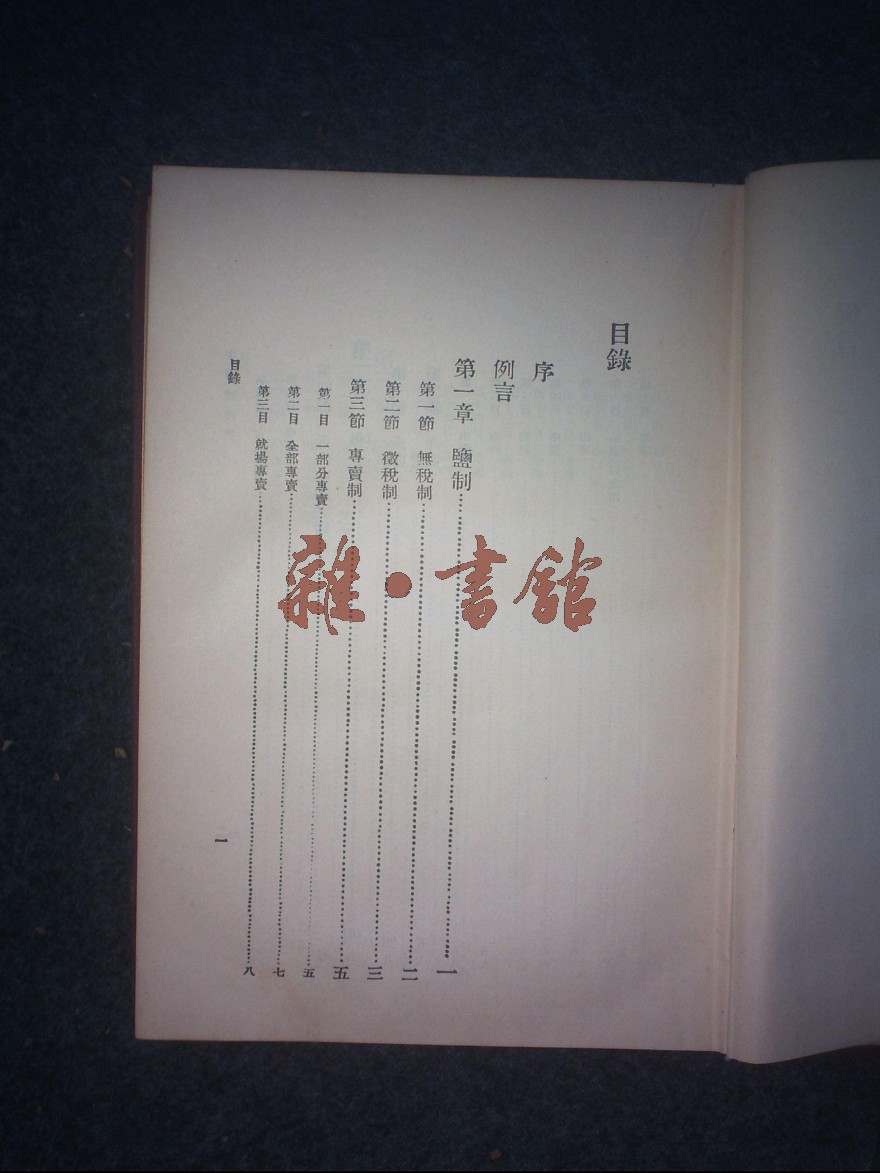 目錄
序
例言
第一章 鹽制……一
第一節 無稅制……二
第二節 徵稅制……三
第三節 專賣制……五
第一目 一部分專賣……五
第二目 全部專賣……七
第三目 就場專賣……八
目錄
一
雜·書館